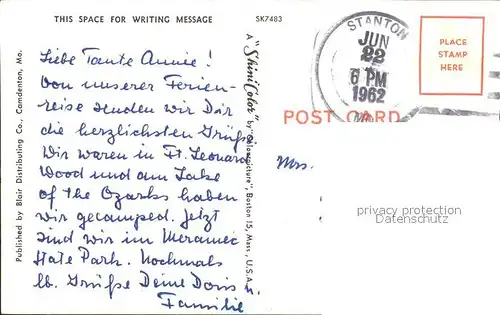 THIS SPACE FOR WRITING MESSAGE
SK7483
Liebe Tante Annie!
Von unserer Ferien-
reise senden wir Dir
die herzlichsten Grüße
Wir waren in Ft. Leonard
Wood und am Lake
of the Ozarks haben
wir gecamped. Jetzt
sind wir im Meramec
State Park. Nochmals
lb. Grüße Deine Doris u.
Familie
Published by Blair Distributing Co. Camdenton, Mo.
A "ShiniColor" by "Colourpicture", Boston 15, Mass., U.S.A.
STANTON
JUN
22
6 PM
1962
MO.
PLACE
STAMP
HERE
POST CARD
Mrs.
privacy protection
Datenschutz